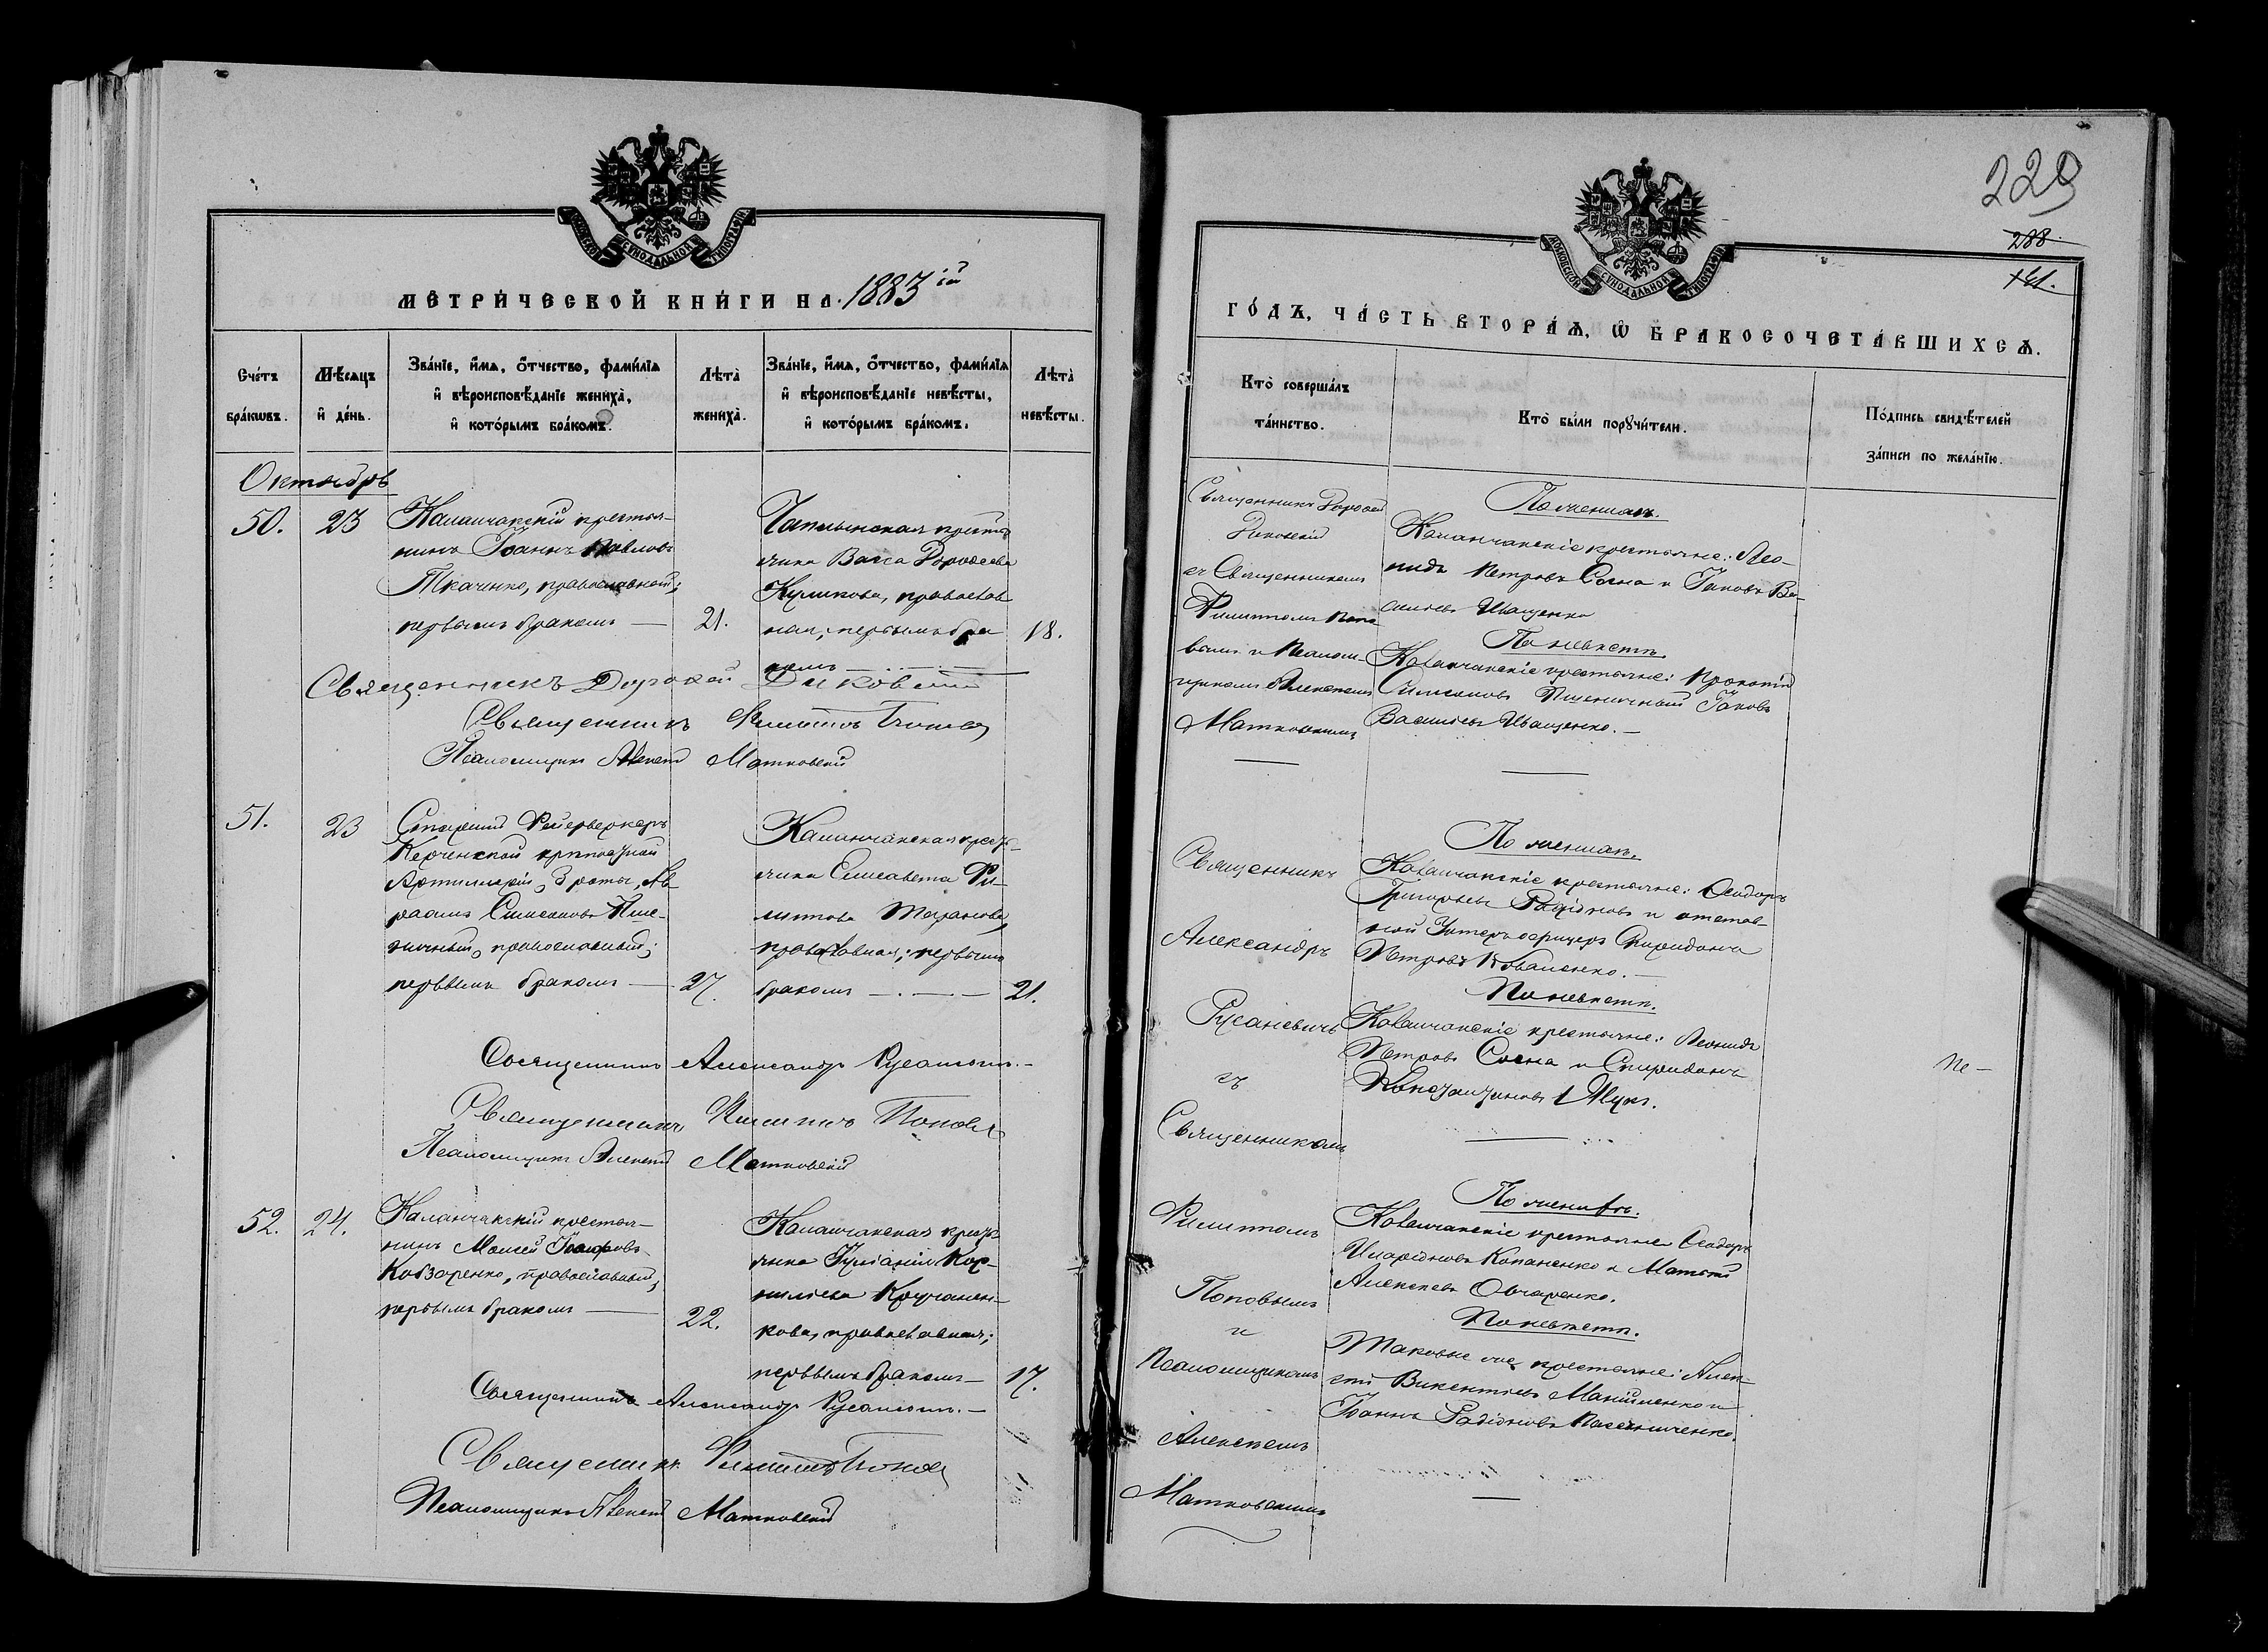 МОСКОВСКОЙ СУНОДАЛЬНОЙ ТИПОГРАФІИ
МЕТРИ́ЧЕСКОЙ КНИ́ГИ НА 1883 ій
Сче́тъ бра́кѡвъ.
Мѣ́сяцъ и҆ де́нь.
Зва́нїе, и҆́мѧ, ѻ҆́тчество, фами́лїѧ
и҆ вѣроисповѣ́данїе жениха̀,
и҆ кото́рымъ бра́комъ.
Лѣта̀ жениха̀.
Зва́нїе, и҆́мѧ, ѻ҆́тчество, фами́лїѧ
и҆ вѣроисповѣ́данїе невѣ́сты,
и҆ кото́рымъ бра́комъ.
Лѣта̀ невѣ́сты.
Октябрь
50.
23
Каланчакскій крестья-
нинъ Іоаннъ Павловъ
Ткаченко, православный;
первымъ бракомъ —
21.
Чаплынская крестья
янка Васса Дороѳеева
Куликова, православ
ная; первымъ бра
комъ —
18.
Священникъ Дороѳей Диковскій
Священникъ Филиппъ Поповъ
Псаломщикъ Алексій Матковскій
51.
23
Старшій Фейерверкеръ
Керченской крѣпостной
Артиллеріи, 3 роты, Ав-
раамъ Симеоновъ Пше-
ничный, православный;
первымъ бракомъ —
27.
Каланчакская крест-
янка Елисавета Фи-
липпова Таранова,
православная; первымъ
бракомъ —
21.
Священникъ Александръ Русаневичъ. —
Священникъ Филиппъ Поповъ
Псаломщикъ Алексій Матковскій
52.
24.
Каланчакскій крестья-
нинъ Моисей
Кобзаренко, православный,
первымъ бракомъ —
22.
Каланчакская крест
янка Іуліанія Кор-
ниліева
кова, православная;
первымъ бракомъ —
17.
Священникъ Александръ Русаневичъ. —
Священникъ Филиппъ Поповъ
Псаломщикъ Алексій Матковскій
229
288.
МОСКОВСКОЙ СУНОДАЛЬНОЙ ТИПОГРАФІИ
ГО́ДЪ, ЧА́СТЬ ВТОРА́Ѧ, Ѡ҆ БРАКОСОЧЕТА́ВШИХСѦ.
Кто̀ соверша́лъ
та́инство.
Кто̀ бы́ли порꙋчи́тели.
По́дпись свидѣ́телей
за́писи по жела́нїю.
Священникъ Дороѳей
Диковскій
съ Священникомъ
Филиппомъ Попо
вымъ и Псалом-
щикомъ Алексѣемъ
Матковскимъ
По женихѣ.
Каланчакскіе крестьяне: Лео-
нидъ Петровъ Сосна и Іаковъ Ва-
силіевъ Иващенко
По невѣстѣ.
Каланчакскіе крестьяне: Прокопій
Симеоновъ Пшеничный Іаковъ
Василіевъ Иващенко. —
Священникъ
Александръ
Русаневичъ
съ
Священникомъ
Филиппомъ
Поповымъ
и
Псаломщикомъ
Алексѣемъ
Матковскимъ
По женихѣ.
Каланчакскіе крестьяне: Ѳеодоръ
Григорьевъ Радіоновъ и отстав-
ной Унтеръ офицеръ Спиридонъ
Петровъ Коваленко. —
По невѣстѣ.
Каланчакскіе крестьяне: Леонидъ
Петровъ Сосна и Спиридонъ
По женихѣ.
Каланчакскіе крестьяне Ѳеодоръ
Иларіоновъ Копаненко и Матѳей
Алексѣевъ Овчаренко.
По невѣстѣ.
Таковые же крестьяне: Алек-
сѣй Викентіевъ Манійленко и
Іоаннъ Радіоновъ Пасечниченко.